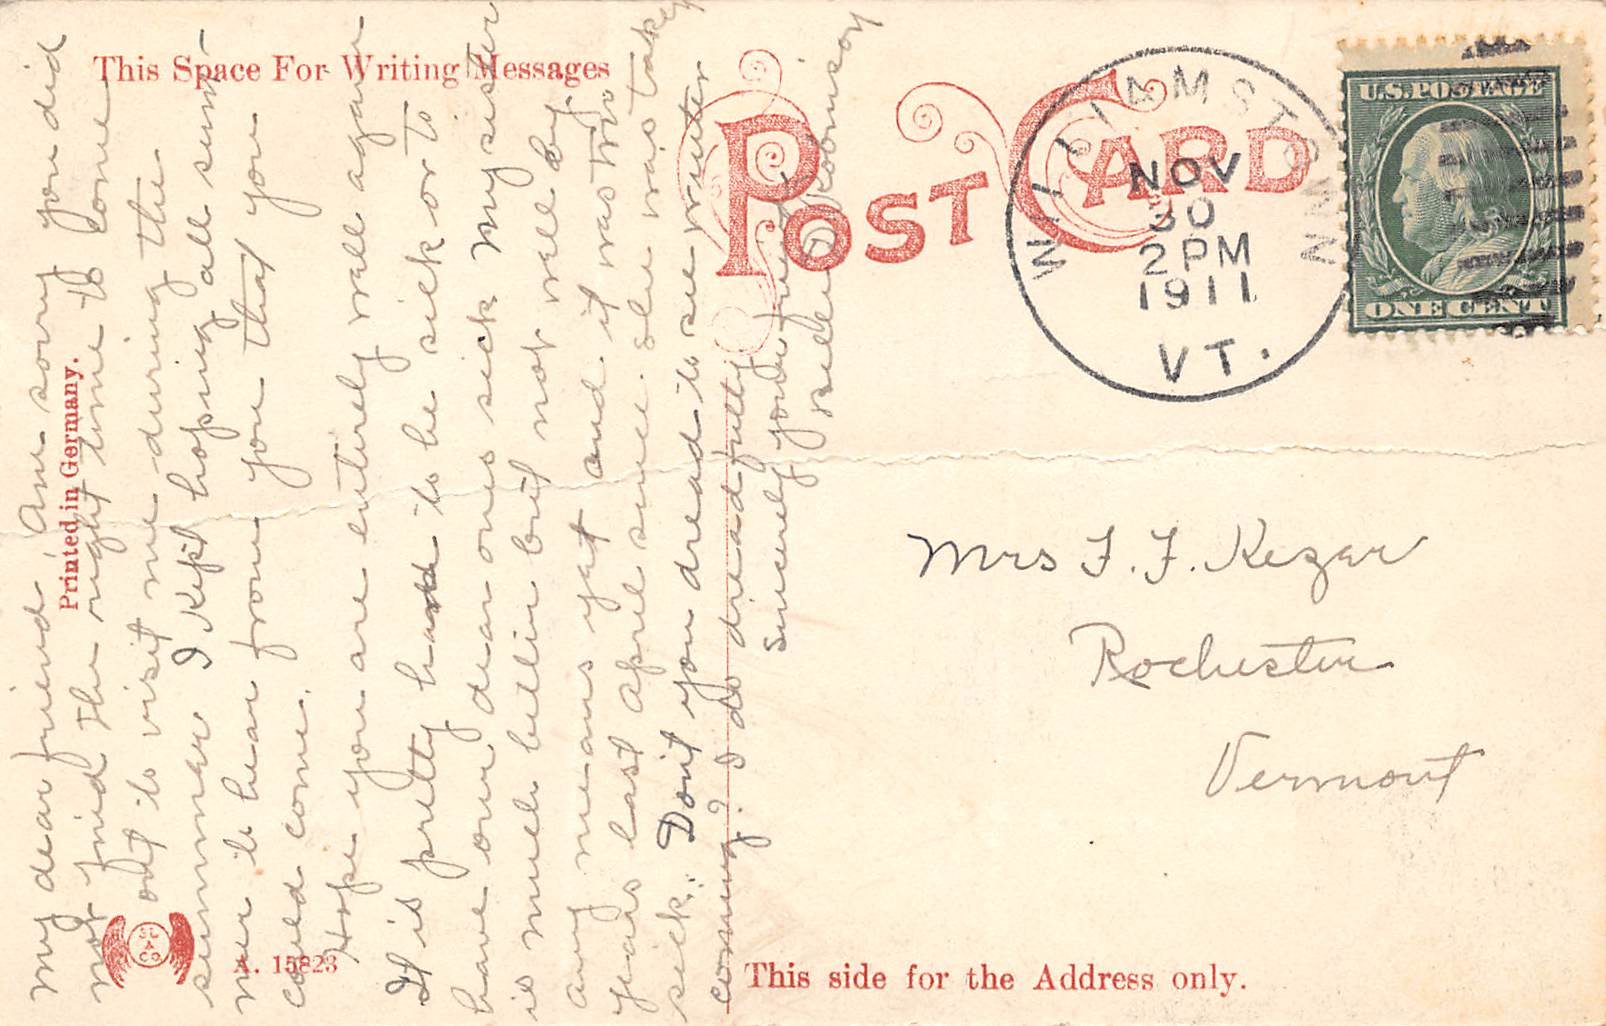 This Space For Writing Messages
POST CARD
WILLIAMSTOWN
NOV
30
2 PM
1911
VT.
U.S. POSTAGE
ONE CENT
Printed in Germany.
My dear friend Am sorry you did
not find the right time to come
out to visit me during the
summer I Kept hoping all sum-
mer to hear from you that you
could come.
Hope you are entirely well again
It is pretty hard to be sick or to
have our dear ones sick My sister
is much better but not well by
any means yet and it was two
years last April since she was taken
sick. Don't you dread to see winter
coming? I do dreadfully
Sincerely your friend
Robinson
Mrs F. F. Kezar
Rochester
Vermont
SL
&
CO
A. 15823
This side for the Address only.